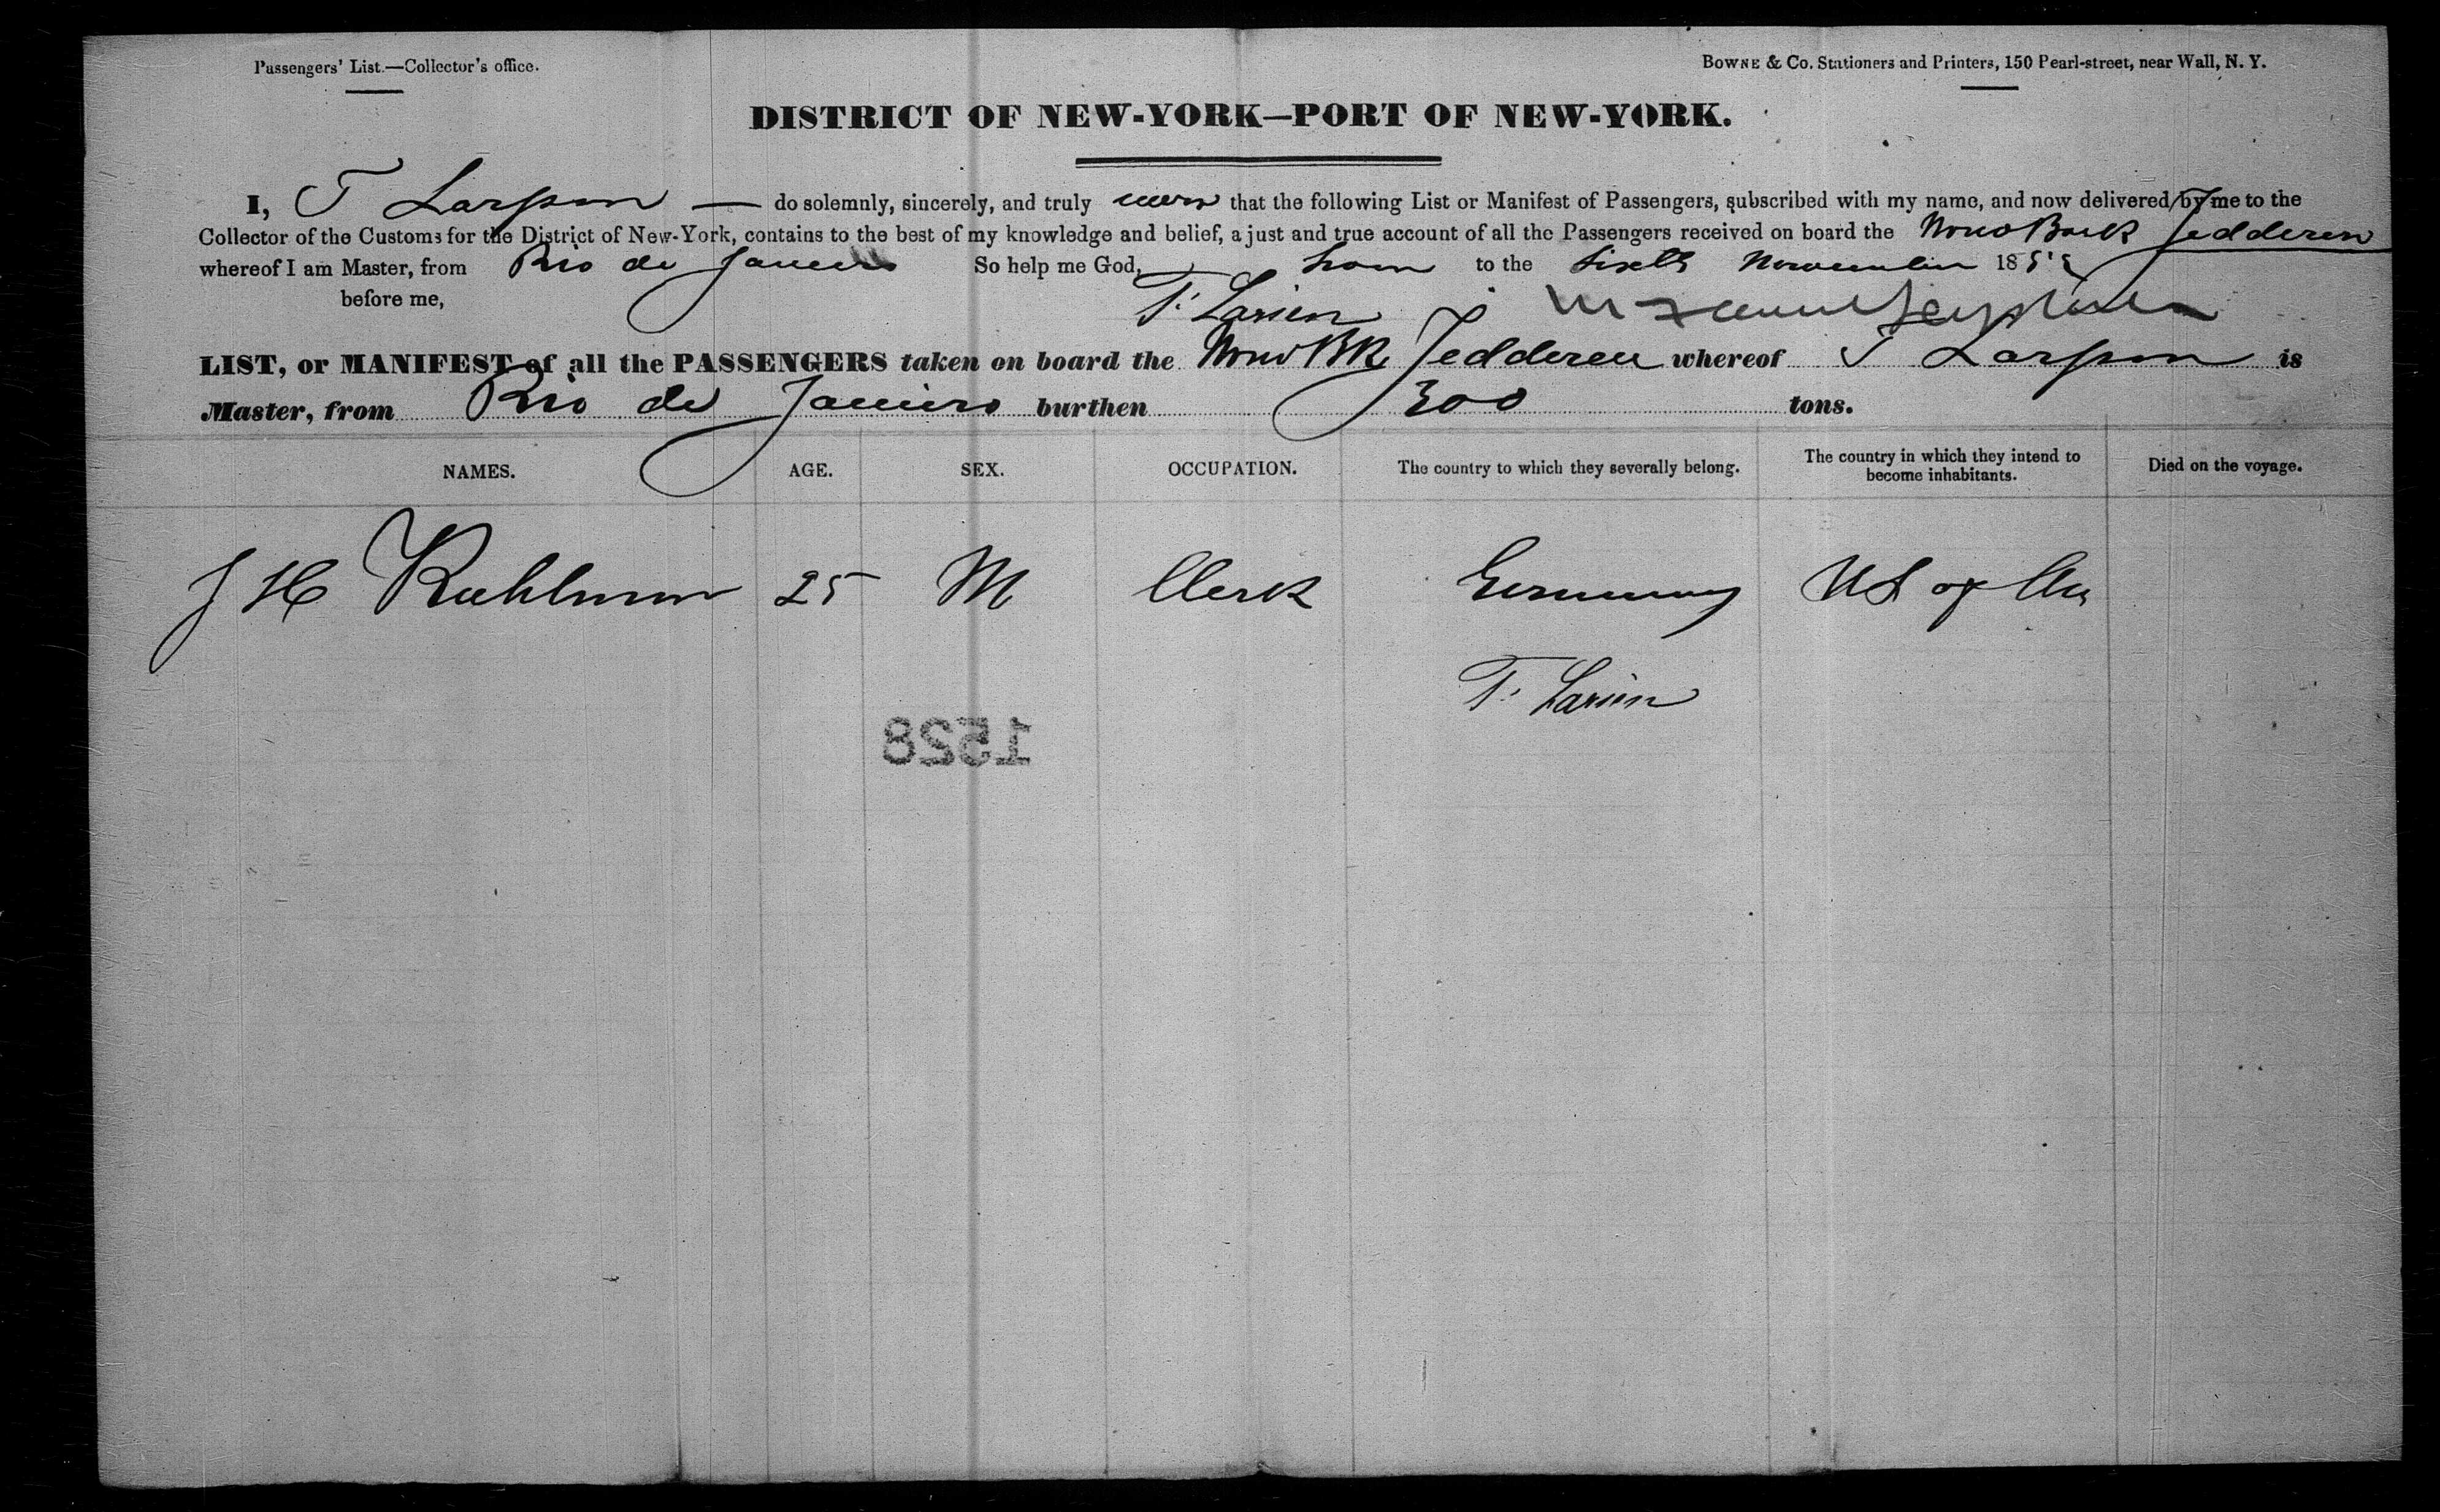 Passengers' List.—Collector's office.
BOWNE & Co. Stationers and Printers, 150 Pearl-street, near Wall, N. Y.
DISTRICT OF NEW-YORK—PORT OF NEW-YORK.
I, T Larsson — do solemnly, sincerely, and truly swear that the following List or Manifest of Passengers, subscribed with my name, and now delivered by me to the
Collector of the Customs for the District of New-York, contains to the best of my knowledge and belief, a just and true account of all the Passengers received on board the Bark Jedderen
whereof I am Master, from Rio de Janeiro So help me God, Sworn to the Sixth November 18
before me,
T. Larsen
LIST, or MANIFEST of all the PASSENGERS taken on board the BK Jedderen whereof T Larsson is
Master, from Rio de Janeiro burthen 300 tons.
NAMES. AGE. SEX. OCCUPATION. The country to which they severally belong. The country in which they intend to become inhabitants. Died on the voyage.
J H Kuhlman 25 M Clerk Germany US of Am
T. Larsen
1528